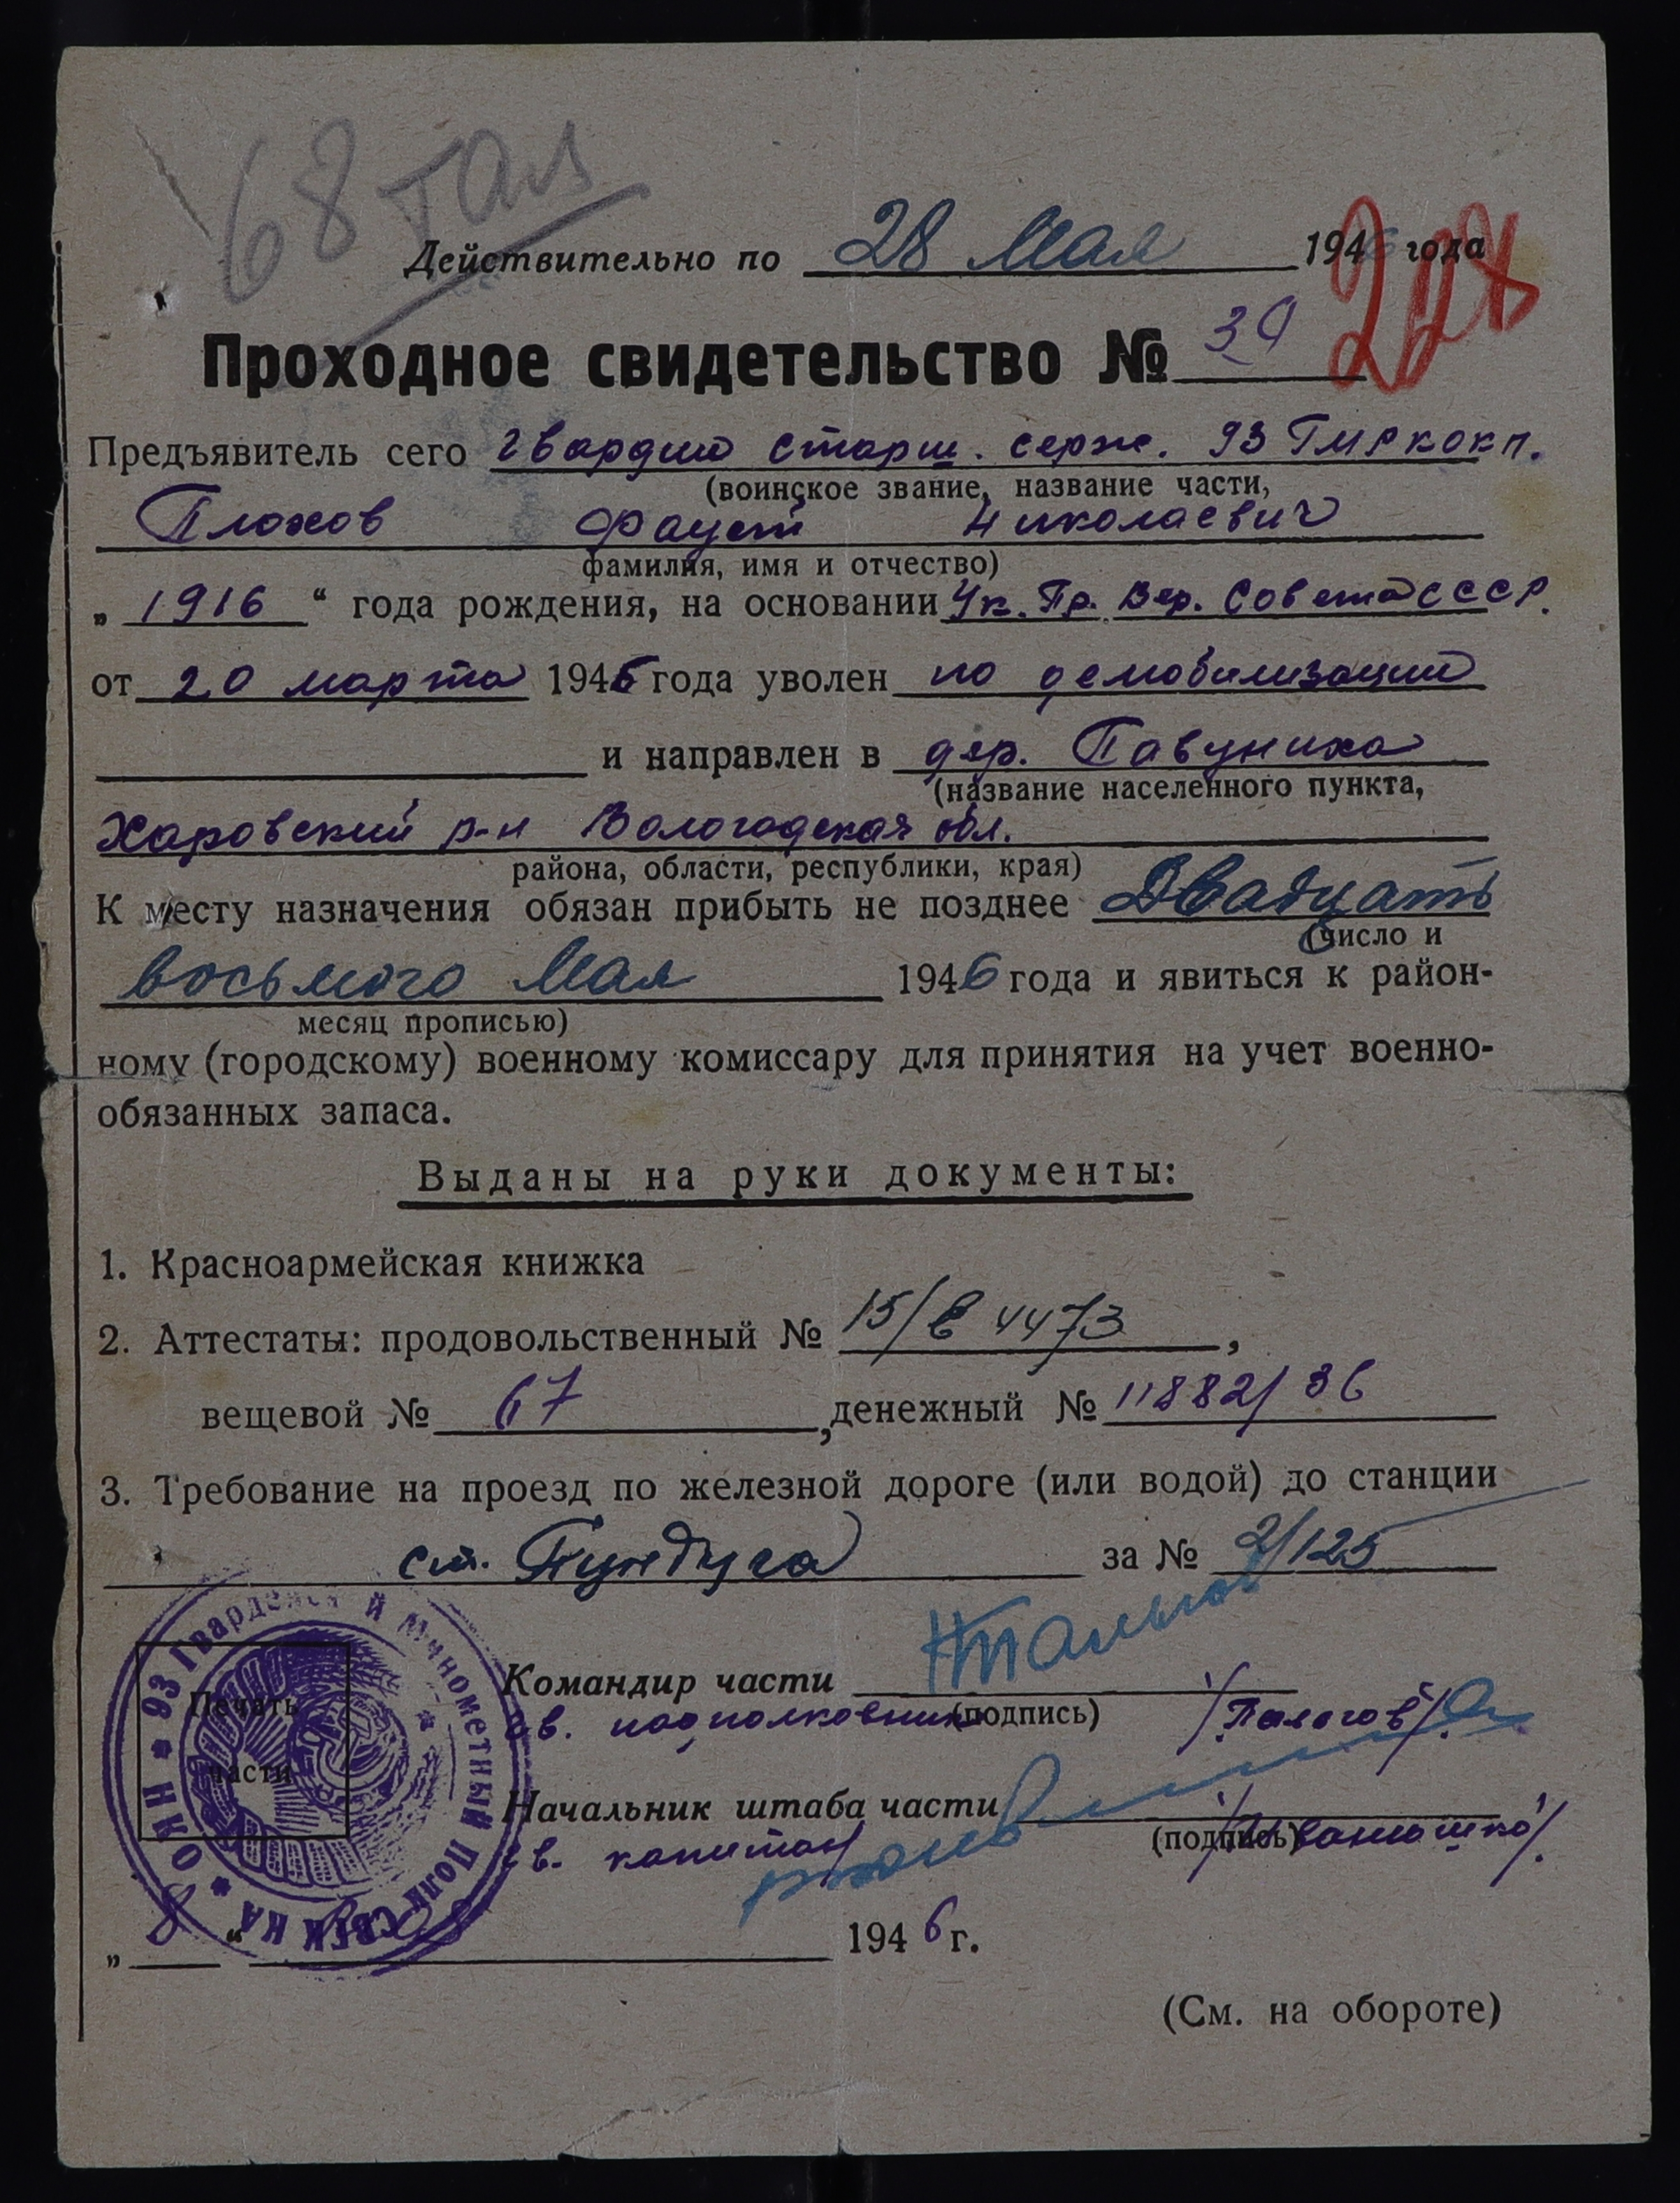 68 тал
Действительно по 28 Мая 1946 года
Проходное свидетельство № 39
Предъявитель сего гвардии старш. серж. 93 ГМРКОКП.
(воинское звание, название части,
Плохов Фауст Николаевич
фамилия, имя и отчество)
„ 1916 “ года рождения, на основании Ук. Пр. Вер. Совета СССР.
от 20 марта 1946 года уволен по демобилизации
и направлен в дер. Павуниха
(название населенного пункта,
Харовский р-н Вологодская обл.
района, области, республики, края)
К месту назначения обязан прибыть не позднее Двадцать
(число и
восьмого Мая 1946 года и явиться к район-
месяц прописью)
ному (городскому) военному комиссару для принятия на учет военно-
обязанных запаса.
Выданы на руки документы:
1. Красноармейская книжка
2. Аттестаты: продовольственный № 15/в 4473,
вещевой № 67, денежный № 11882/36
3. Требование на проезд по железной дороге (или водой) до станции
ст. Пундуга за № 2/125
93 Гвардейский Минометный Полк
Печать
части
Командир части
гв. подполковник (подпись) /Палогов/
Начальник штаба части
гв. капитан (подпись) /Иванюшко/.
„ “ 1946 г.
(См. на обороте)